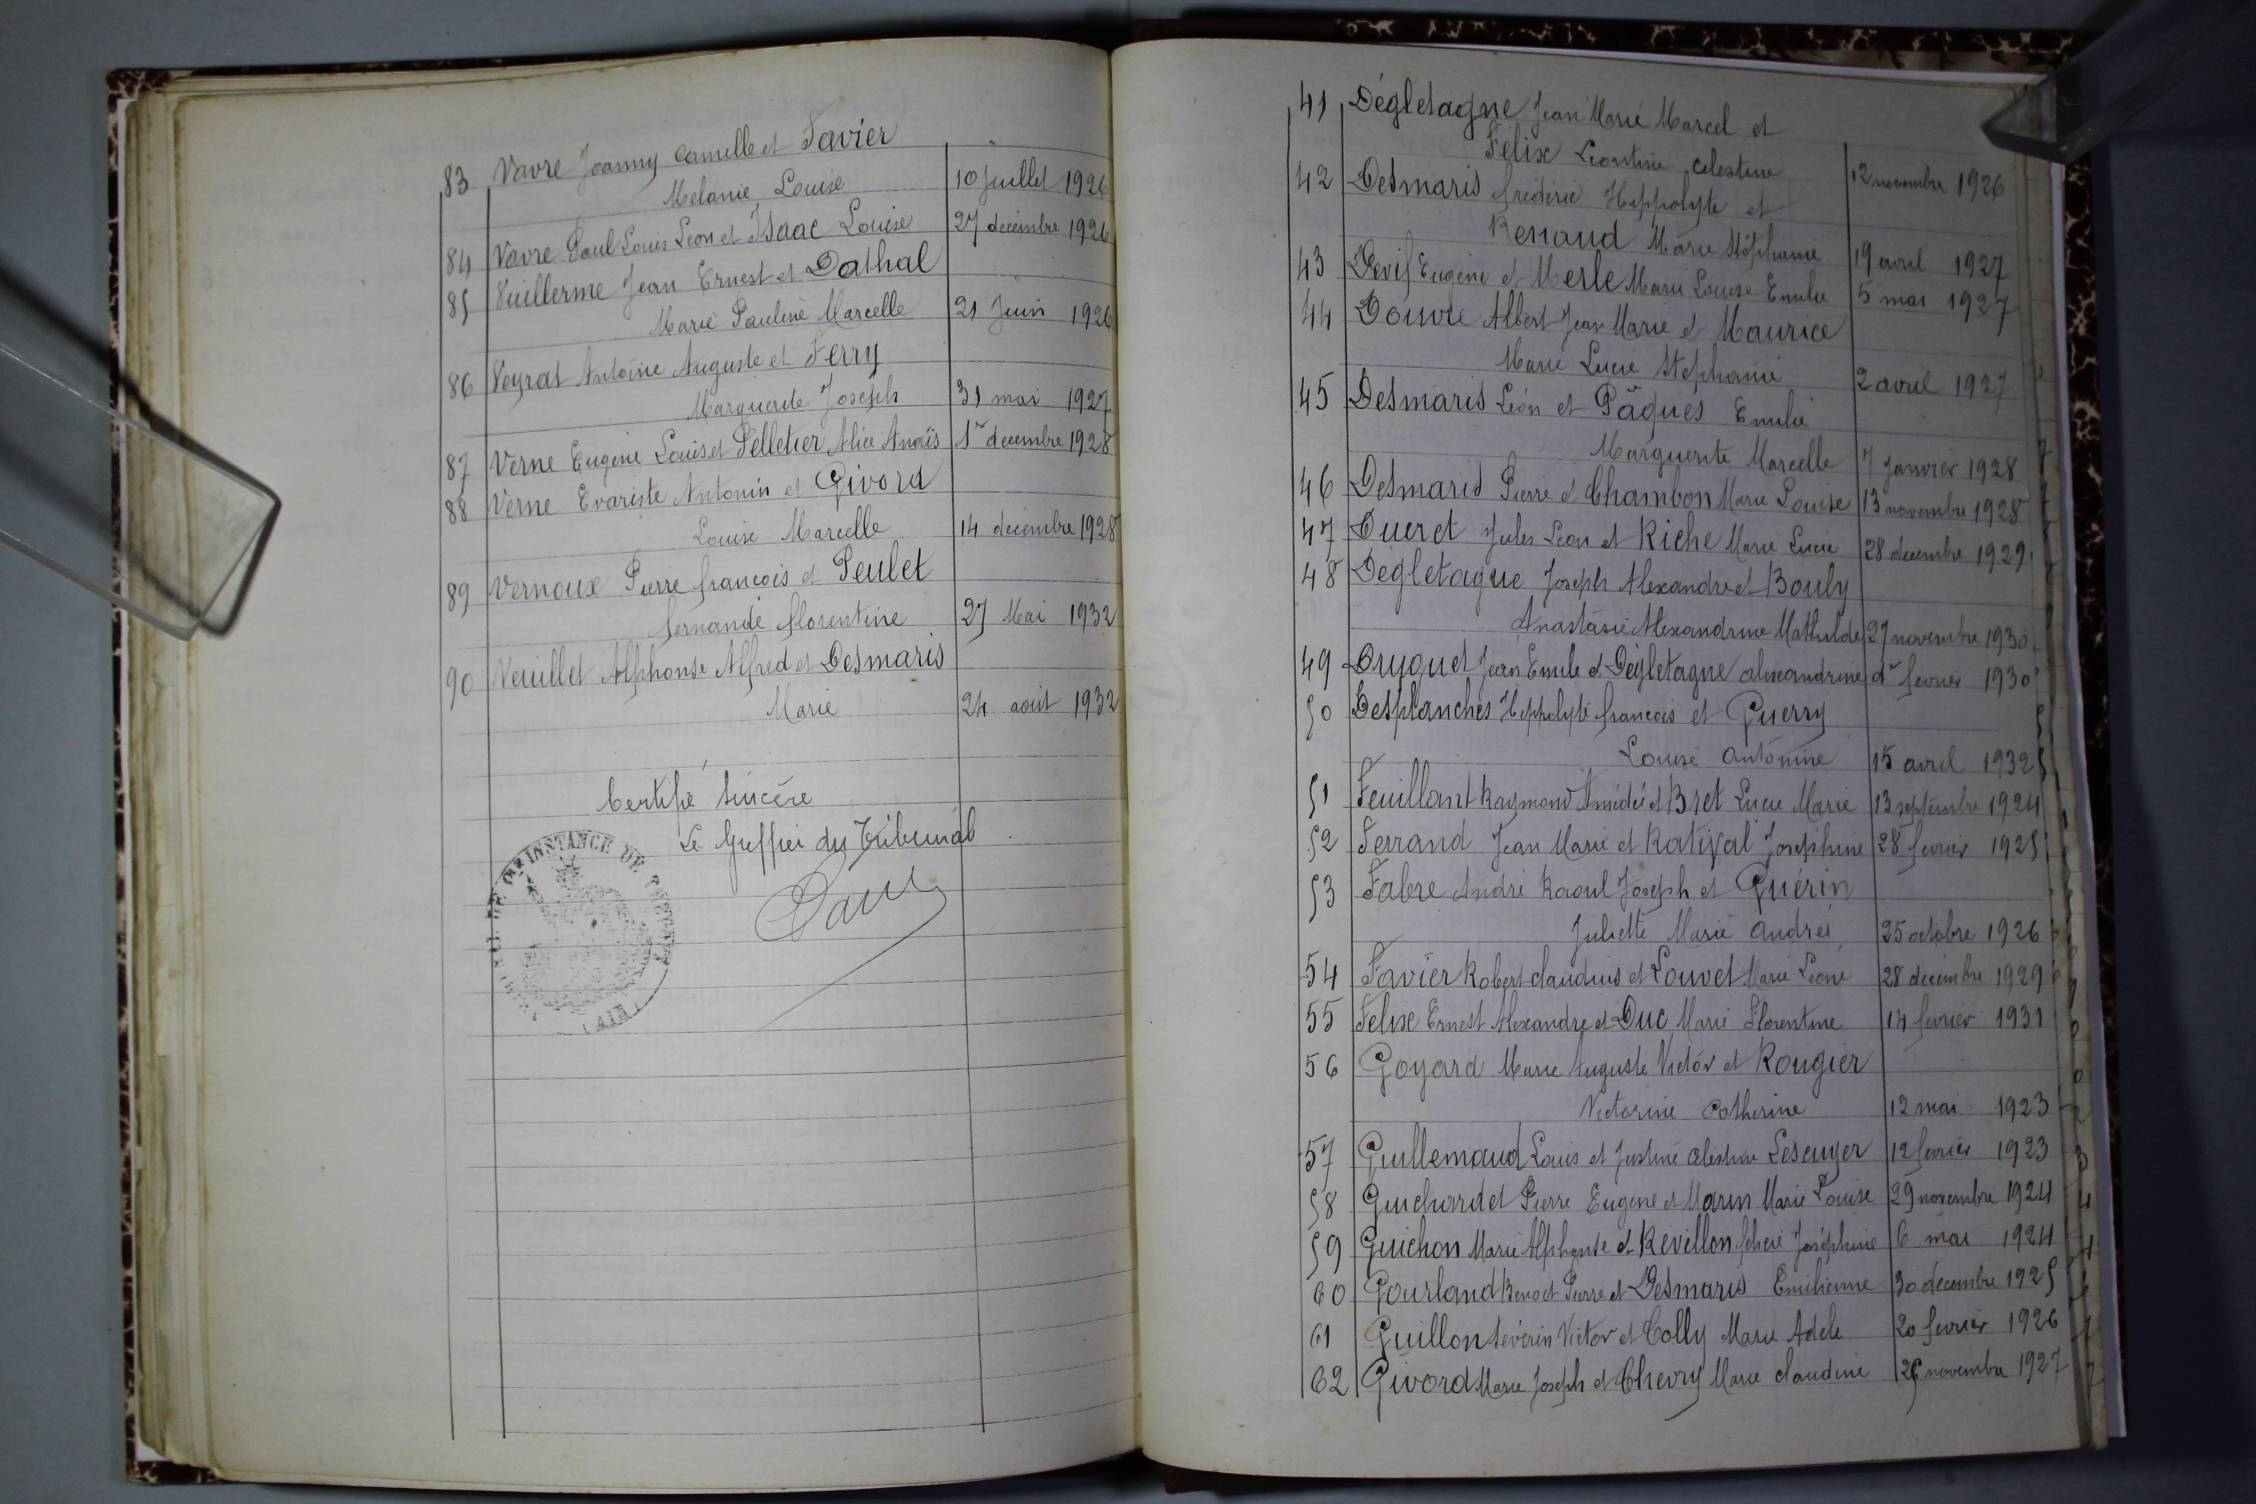 83 Vavre Joanny Camille et Favier
Melanie Louise 10 Juillet 1926
84 Vavre Paul Louis Leon et Isaac Louise 27 decembre 1926
85 Vuillerme Jean Ernest et Dathal
Marie Pauline Marcelle 21 Juin 1926
86 Veyrat Antoine Auguste et Ferry
Marguerite Joseph 31 mai 1927
87 Verne Eugène Louis et Pelletier Alice Anaïs 1er decembre 1928
88 Verne Evariste Antonin et Givord
Louise Marcelle 14 decembre 1928
89 Vernoux Pierre françois et Peulet
fernande florentine 27 Mai 1932
90 Veuillet Alphonse Alfred et Desmaris
Marie 24 août 1932
Certifié Sincère
Le Greffier du Tribunal
INSTANCE DE
(AIN)
41 Dégletagne Jean Marie Marcel et
Félix Léontine Celestine 12 novembre 1926
42 Desmaris frédéric Hippolyte et
Renaud Marie Stéphanie 19 avril 1927
43 Devif Eugène et Merle Marie Louise Emilie 5 mai 1927
44 Douvre Albert Jean Marie et Maurice
Marie Lucie Stephanie 2 avril 1927
45 Desmaris Léon et Pâques Emilie
Marguerite Marcelle 7 Janvier 1928
46 Desmaris Pierre et Chambon Marie Louise 13 novembre 1928
47 Dueret Jules Léon et Riche Marie Lucie 28 decembre 1929
48 Dégletagne Joseph Alexandre et Bouly
Anastasie Alexandrine Mathilde 27 novembre 1930
49 Druguet Jean Emile et Dégletagne alexandrine 1er fevrier 1930
50 Desplanches Hippolyte françois et Guerry
Louise Antonine 15 avril 1932
51 Feuillant Raymond Amédée et Bret Lucie Marie 13 septembre 1924
52 Ferrand Jean Marie et Ratival Joséphine 28 fevrier 1925
53 Fabre André Raoul Joseph et Guérin
Juliette Marie Andrée 25 octobre 1926
54 Favier Robert claudius et Louvet Marie Léonie 28 decembre 1929
55 Felix Ernest Alexandre et Duc Marie Florentine 14 fevrier 1931
56 Goyard Marie Auguste Victor et Rougier
Victorine Catherine 12 mai 1923
57 Guillemaud Louis et Justine celestine Lesenyer 12 fevrier 1923
58 Guichardet Pierre Eugène et Marin Marie Louise 29 novembre 1924
59 Guichon Marie Alphonse et Révillon félicie Joséphine 6 mai 1924
60 Gourland Benoit Pierre et Desmaris Emilienne 30 decembre 1925
61 Guillon Séverin Victor et Colly Marie Adele 20 fevrier 1926
62 Givord Marie Joseph et Chevry Marie claudine 26 novembre 1927